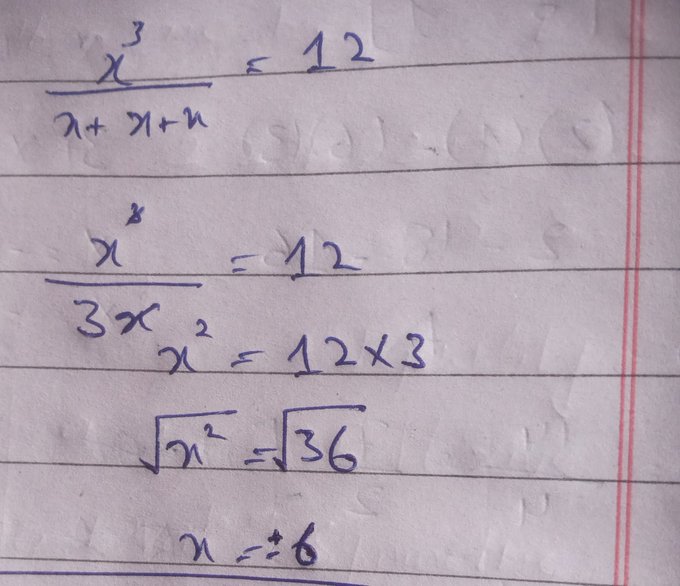 x³/(x+x+x) = 12
x³/3x = 12
x² = 12×3
√x² = √36
x = ±6